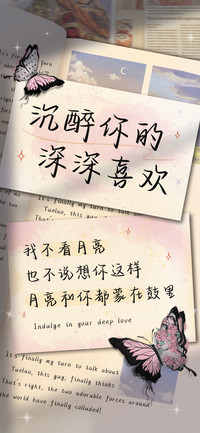 沉醉你的
深深喜欢
It's finally my turn to talk about
我不看月亮
也不说想你这样
月亮和你都蒙在鼓里
Indulge in your deep love
It's finally my turn to talk about
Yuelao, this guy, finally thinks
That's right, the two adorable forces around
the world have finally colluded!